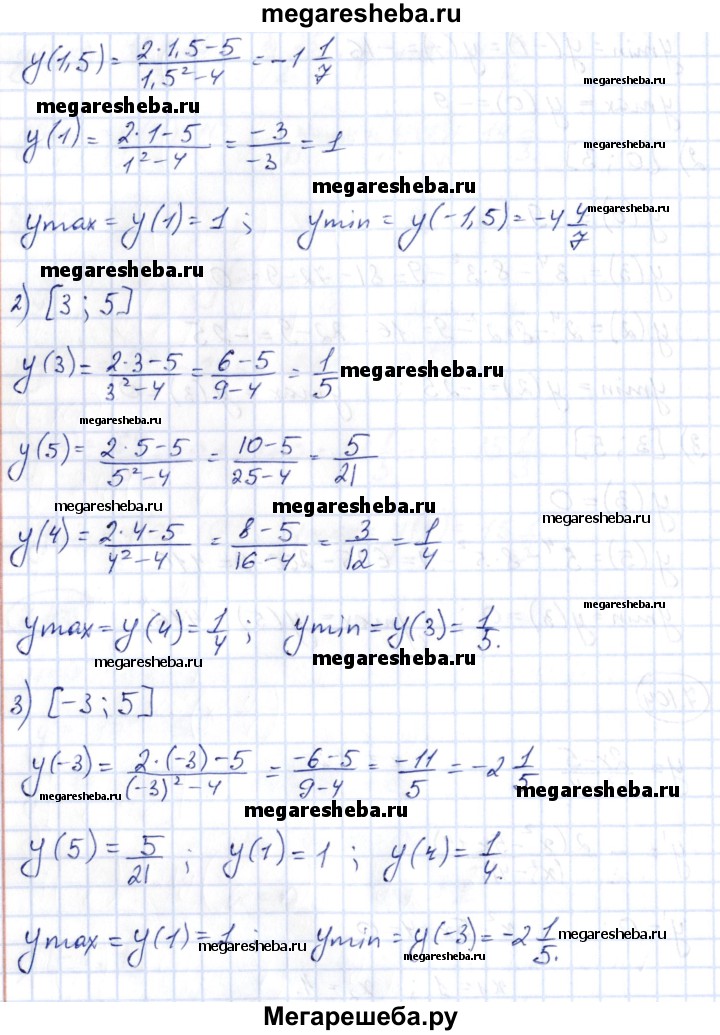 megaresheba.ru
y(1,5) = (2·1,5−5)/(1,5²−4) = −1 1/7
megaresheba.ru
megaresheba.ru
y(1) = (2·1−5)/(1²−4) = −3/−3 = 1
megaresheba.ru
ymax = y(1) = 1 ; ymin = y(−1,5) = −4 4/7
megaresheba.ru
megaresheba.ru
2) [3 ; 5]
y(3) = (2·3−5)/(3²−4) = (6−5)/(9−4) = 1/5
megaresheba.ru
megaresheba.ru
y(5) = (2·5−5)/(5²−4) = (10−5)/(25−4) = 5/21
megaresheba.ru megaresheba.ru megaresheba.ru
y(4) = (2·4−5)/(4²−4) = (8−5)/(16−4) = 3/12 = 1/4
megaresheba.ru
ymax = y(4) = 1/4 ; ymin = y(3) = 1/5.
megaresheba.ru megaresheba.ru
3) [−3 ; 5]
y(−3) = (2·(−3)−5)/((−3)²−4) = (−6−5)/(9−4) = −11/5 = −2 1/5
megaresheba.ru megaresheba.ru megaresheba.ru
y(5) = 5/21 ; y(1) = 1 ; y(4) = 1/4.
ymax = y(1) = 1 ymin = y(−3) = −2 1/5.
megaresheba.ru megaresheba.ru megaresheba.ru
Мегарешеба.ру